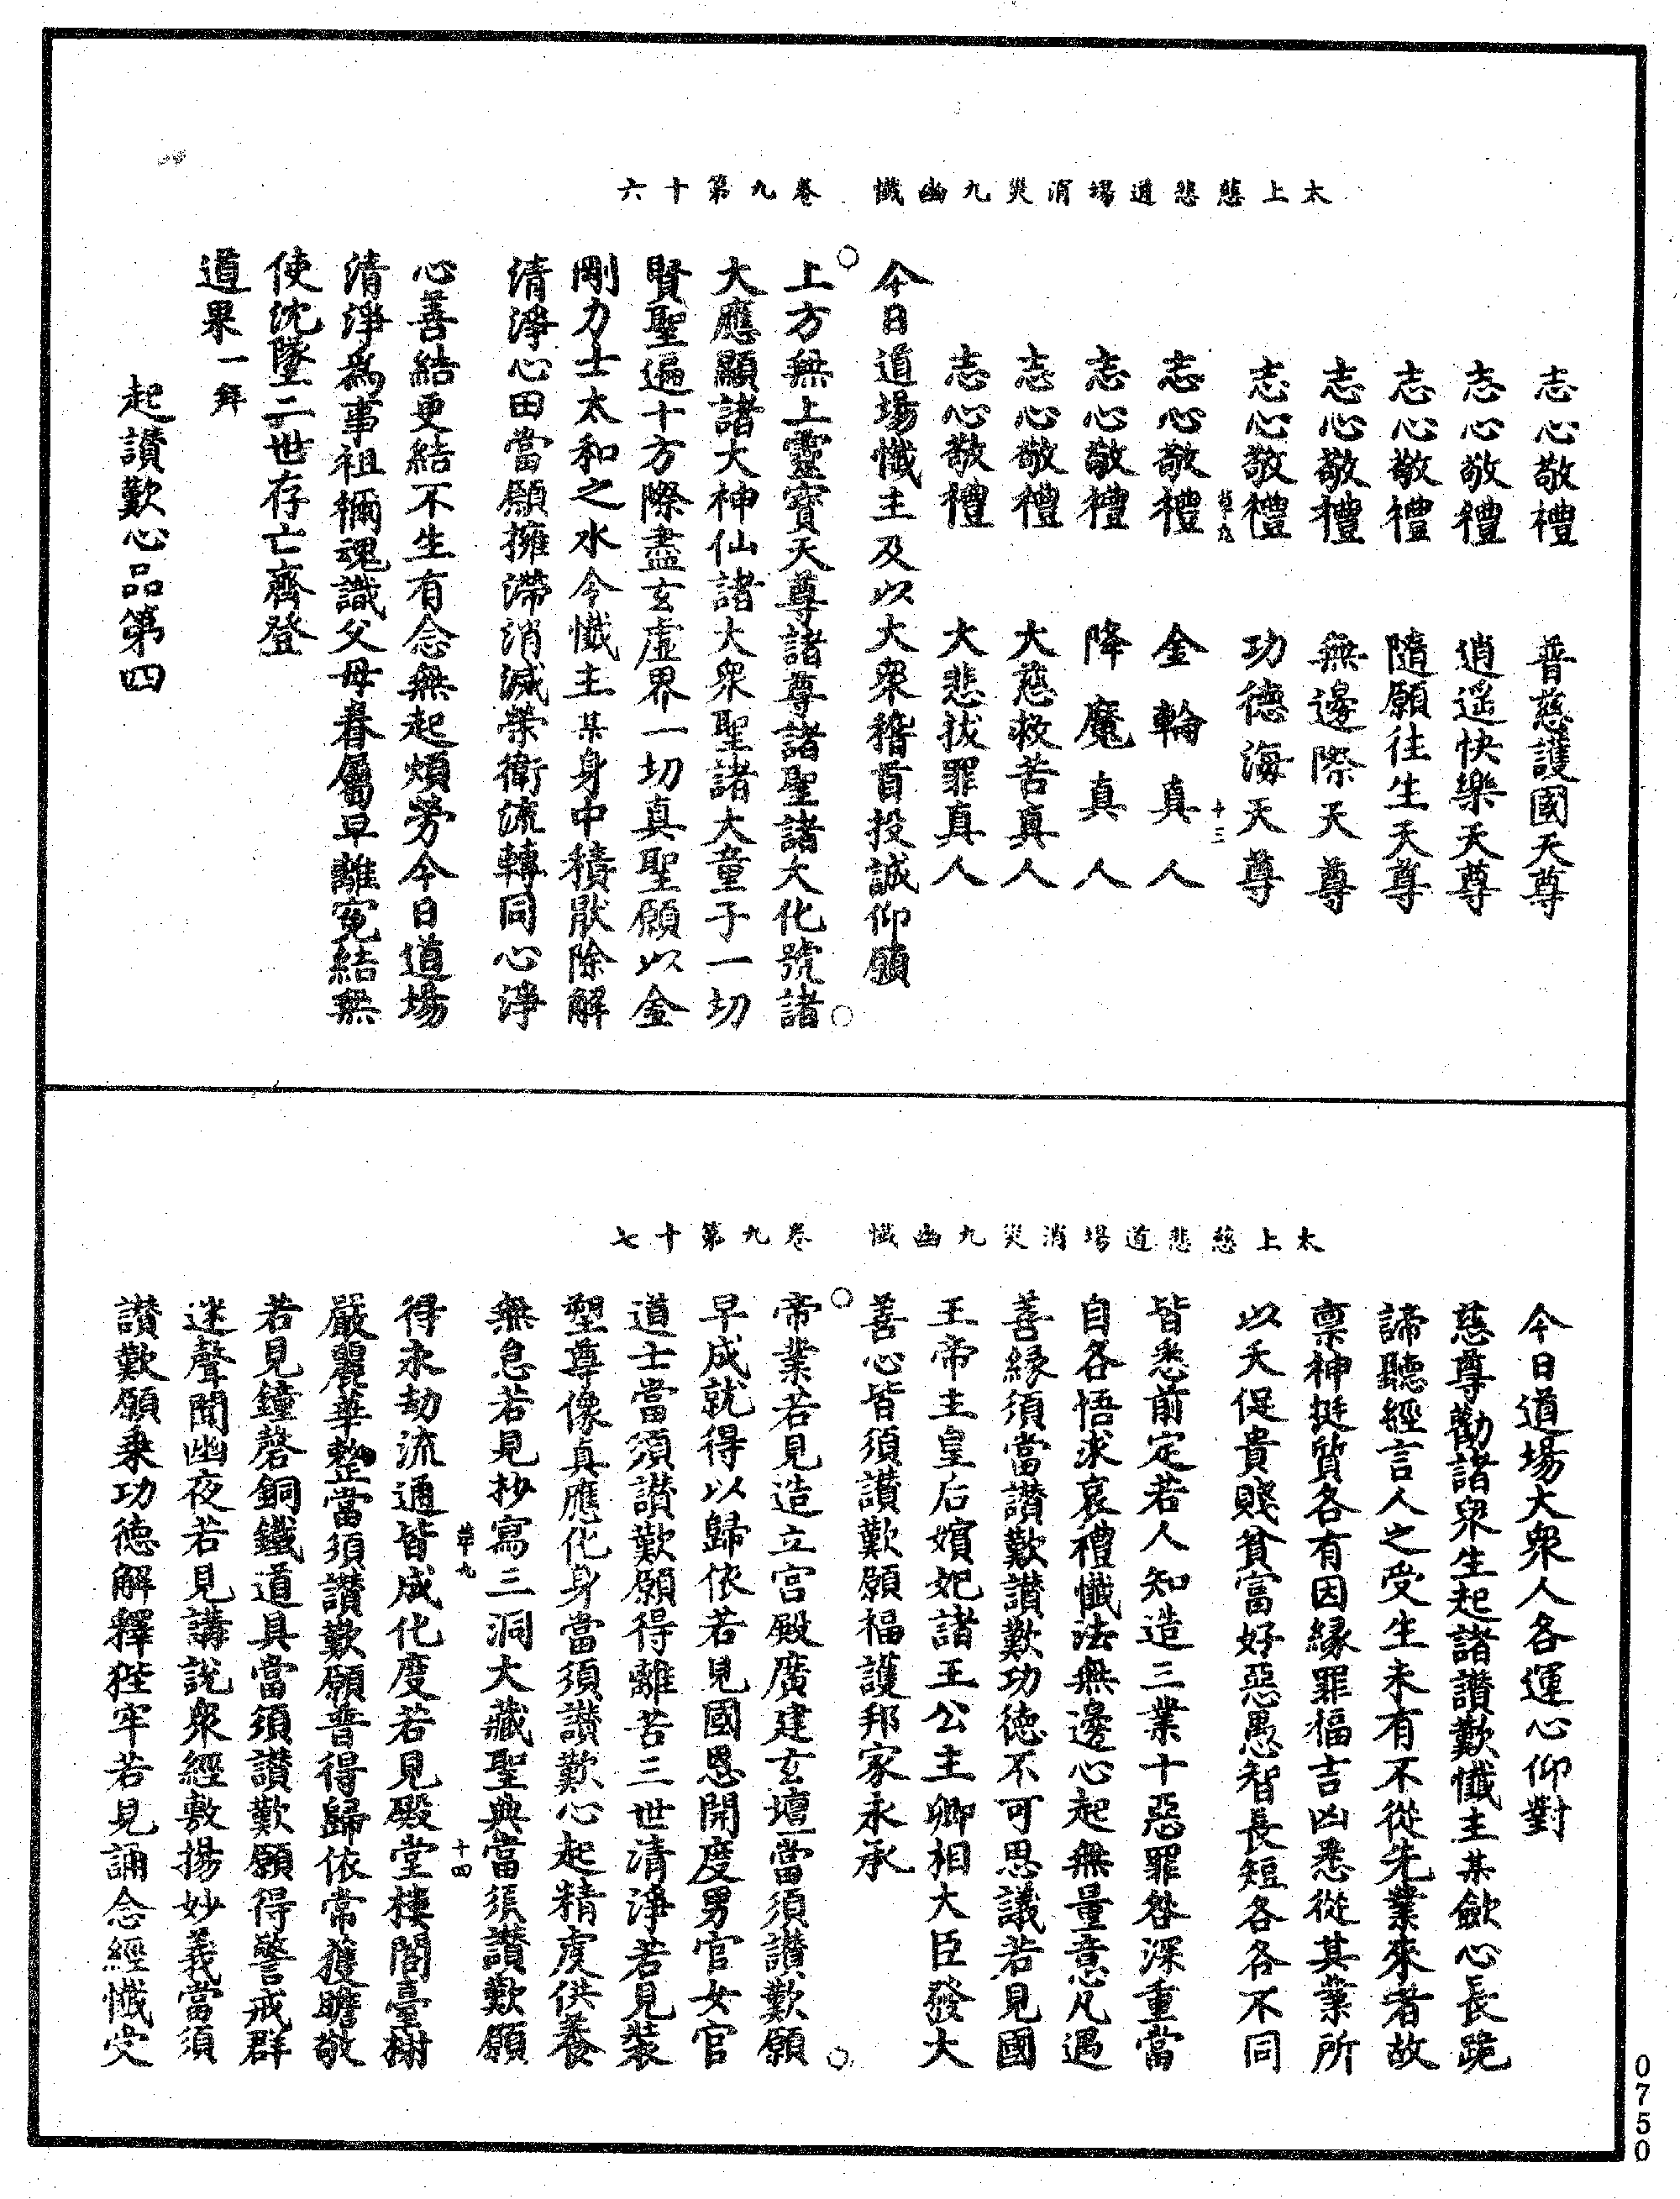 太上慈悲道場消災九幽懺　卷九第十六
志心敬禮　普慈護國天尊
志心敬禮　逍遥快樂天尊
志心敬禮　隨願往生天尊
志心敬禮　無邊際天尊
志心敬禮　功德海天尊
十三
志心敬禮　金輪真人
志心敬禮　降魔真人
志心敬禮　大慈救苦真人
志心敬禮　大悲拔罪真人
今日道場懺主及以大衆稽首投誠仰願
上方無上靈寳天尊諸尊諸聖諸大化號諸
大應顯諸大神仙諸大衆聖諸大童子一切
賢聖遍十方際盡玄虛界一切真聖願以金
剛力士太和之水今懺主某身中積猒除解
清淨心田當願擁滯消滅榮衛流轉同心淨
心善結更結不生有念無起煩勞今日道場
清淨為事祖禰魂識父母眷屬早離寃結無
使沈墜二世存亡齊登
道果一拜
起讃歎心品第四
太上慈悲道場消災九幽懺　卷九第十七
今日道場大衆人各運心仰對
慈尊勸諸衆生起諸讃歎懺主某歛心長跪
諦聽經言人之受生未有不從先業來者故
禀神挺質各有因緣罪福吉凶悉從其業所
以夭促貴賤貧富好惡愚智長短各各不同
皆悉前定若人知造三業十惡罪咎深重當
自各悟求哀禮懺法無邊心起無量意凡遇
善緣須當讃歎讃歎功德不可思議若見國
王帝主皇后嬪妃諸王公主卿相大臣發大
善心皆須讃歎願福護邦家永承
帝業若見造立宫殿廣建玄壇當須讃歎願
早成就得以歸依若見國恩開度男官女官
道士當須讃歎願得離苦三世清淨若見裝
塑尊像真應化身當須讃歎心起精虔供養
無怠若見抄寫三洞大藏聖典當須讃歎願
草九　十四
得永劫流通皆成化度若見殿堂樓閣臺榭
嚴麗華整當須讃歎願普得歸依常獲瞻敬
若見鐘磬銅鐵道具當須讃歎願得警戒群
迷聲聞幽夜若見講說衆經敷揚妙義當須
讃歎願乗功德解釋狴牢若見誦念經懺受
0750